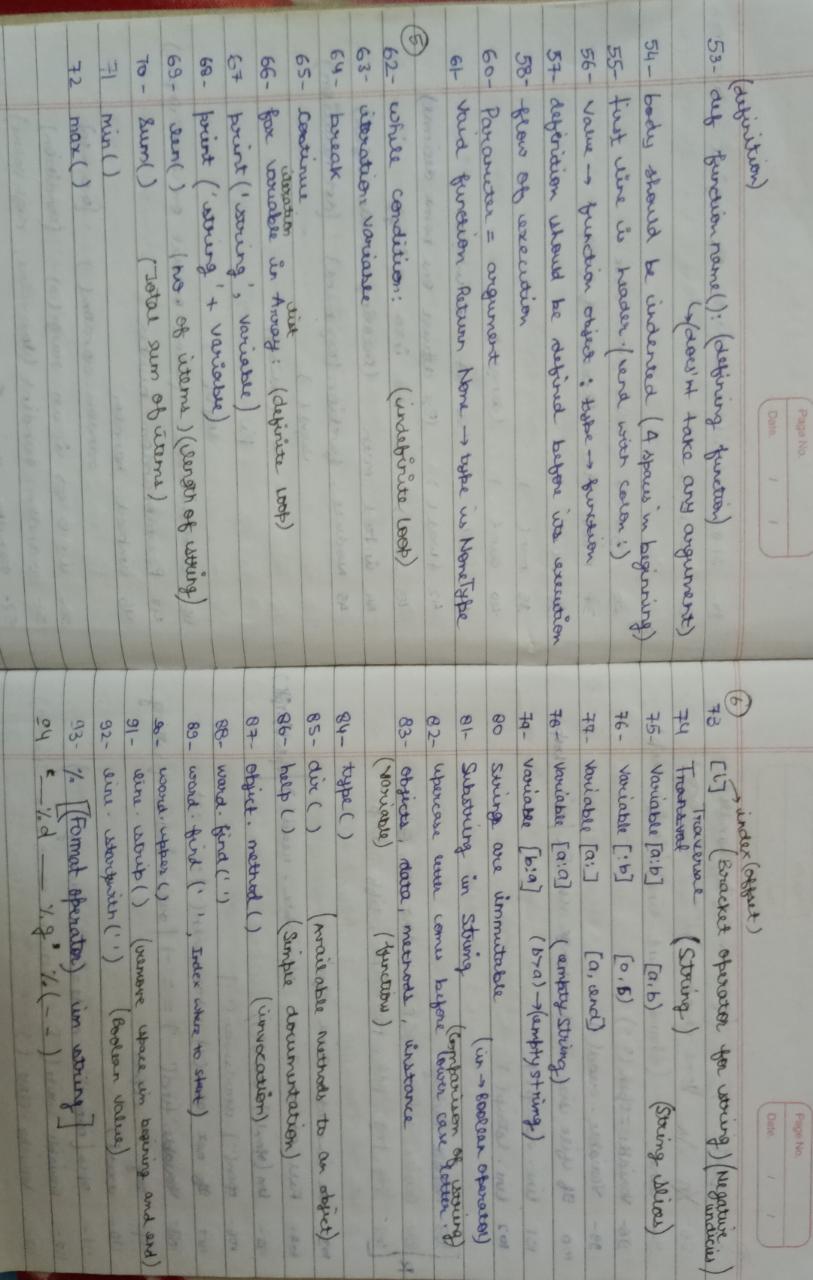 Page No.
Date
(definition)
53- def function name(): (defining function)
↳(does'nt take any argument)
54- body should be indented (4 spaces in beginning)
55- first line is header (end with colon :)
56- value → function object ; type → function
57- definition should be defined before its execution
58- flow of execution
60- Parameter = argument
61- Void function Return None → type is NoneType
5
62- while condition: (indefinite loop)
63- iteration variable
64- break
65- continue
iteration list
66- for variable in Array : (definite loop)
67 print ('string', variable)
68- print ('string' + variable)
69- len() (no. of items) (length of string)
70- Sum() (Total sum of items)
71 min()
72 max()
Page No.
Date
6
→ index (offset)
73 [i] (Bracket operator for string) (Negative indicies)
Traverse
74 (String)
75- Variable [a:b] [a,b) (String slices)
76- variable [:b] [0,b)
77- variable [a:] [a,end]
78- variable [a:a] (empty string)
79- variable [b:a] (b>a) → (empty string)
80 Strings are immutable
81- Substring in String (in → Boolean operator)
(comparison of string)
82- uppercase letter comes before lower case letter.
83- objects, data, methods, instance
(variable) (function)
84- type()
85- dir() (Available methods to an object)
86- help() (Simple documentation)
87- object.method() (invocation)
88- word.find(' ')
89- word.find(' ', Index where to start)
90- word.upper()
91- line.strip() (remove space in begining and end)
92- line.startwith(' ') (Boolean value)
93- % [(Format operator) in string]
94 '__ %d __ %g' %(- -)